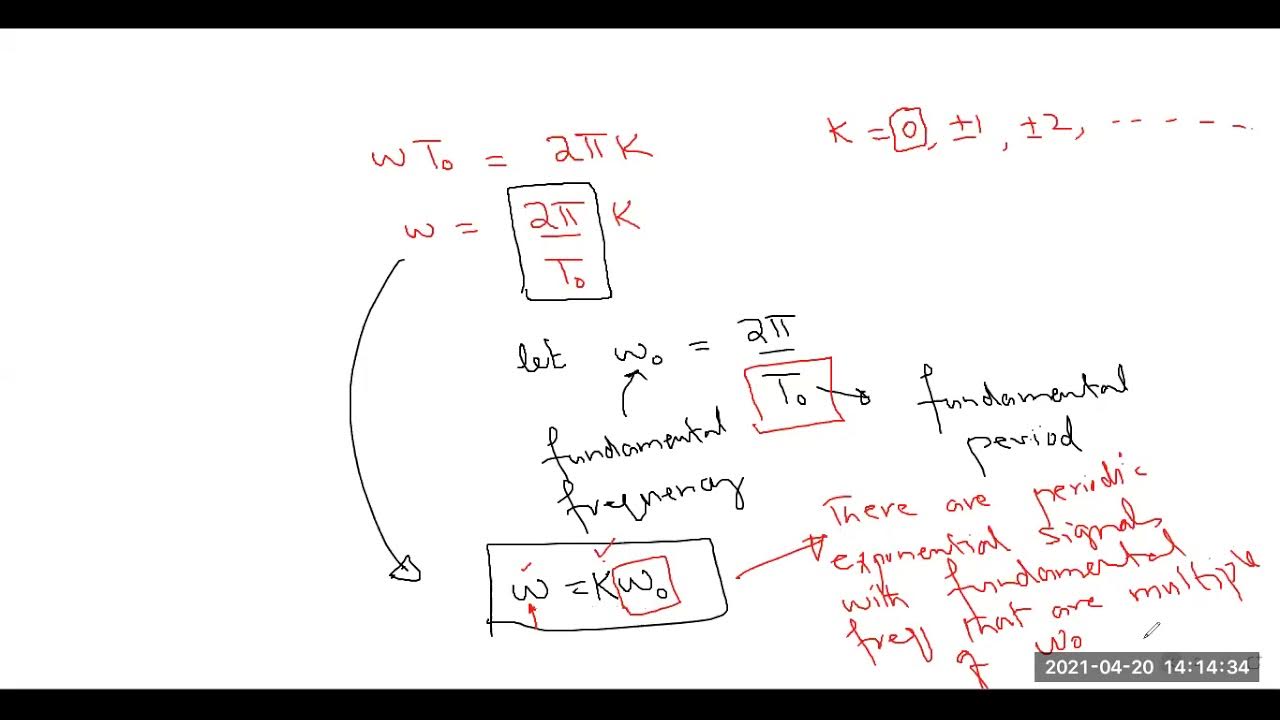 K = 0, ±1, ±2, - - - - - -
ωT₀ = 2πK
ω = 2π/T₀ K
let ω₀ = 2π/T₀
fundamental period
fundamental
frequency
ω = Kω₀
There are periodic
exponential signals
with fundamental
freq that are multiple
of ω₀
2021-04-20 14:14:34